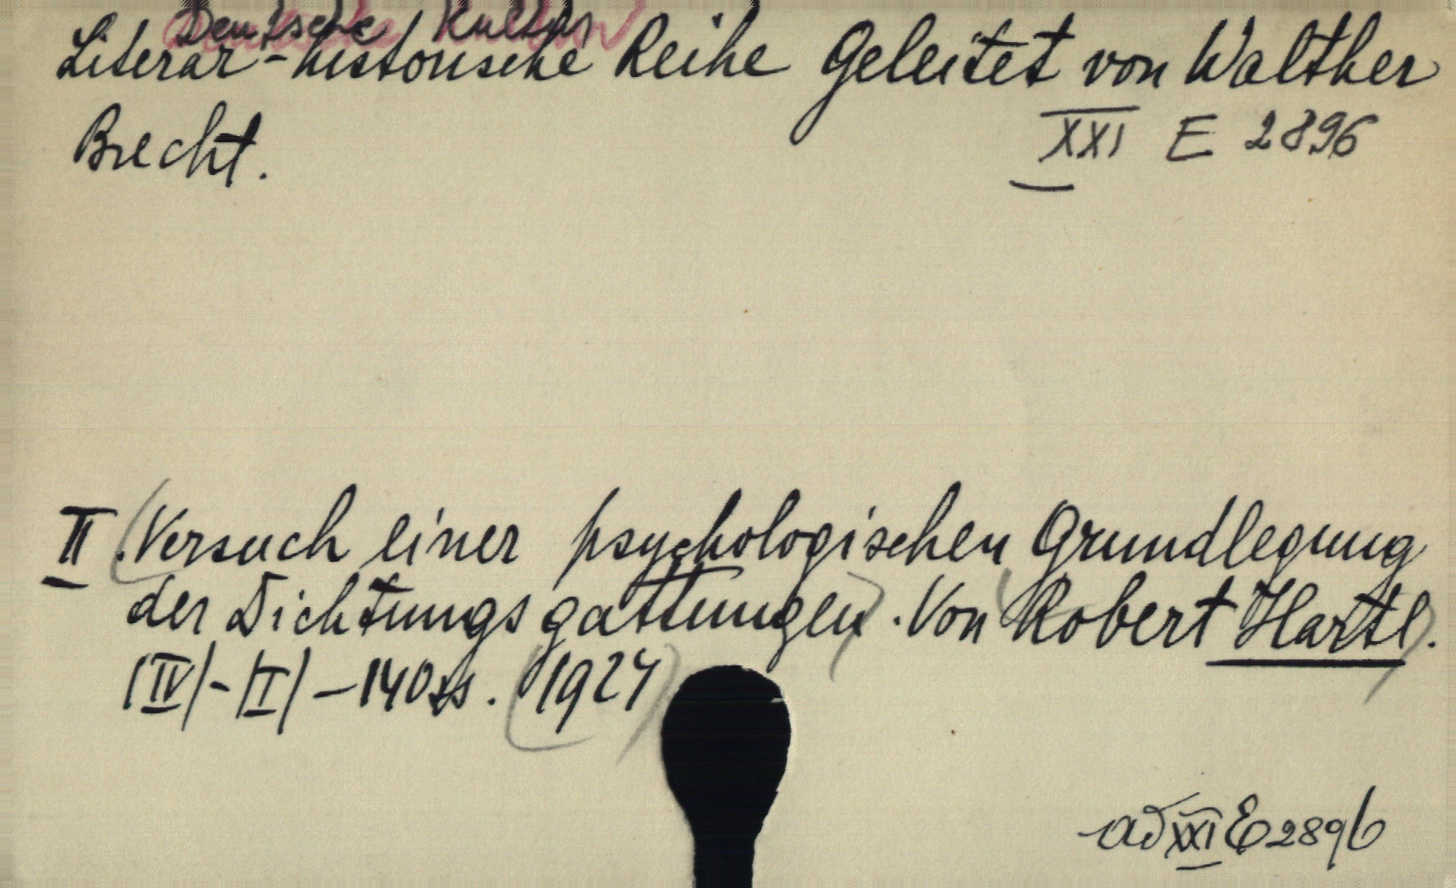 Deutsche Kultur
Literar-historische Reihe Geleitet von Walther
Brecht.
XXI E 2896
II. Versuch einer psychologischen Grundlegung
der Dichtungsgattungen. Von Robert Hartl.
|IV|-|I|-140 ss. 1924
ad XXI E 2896